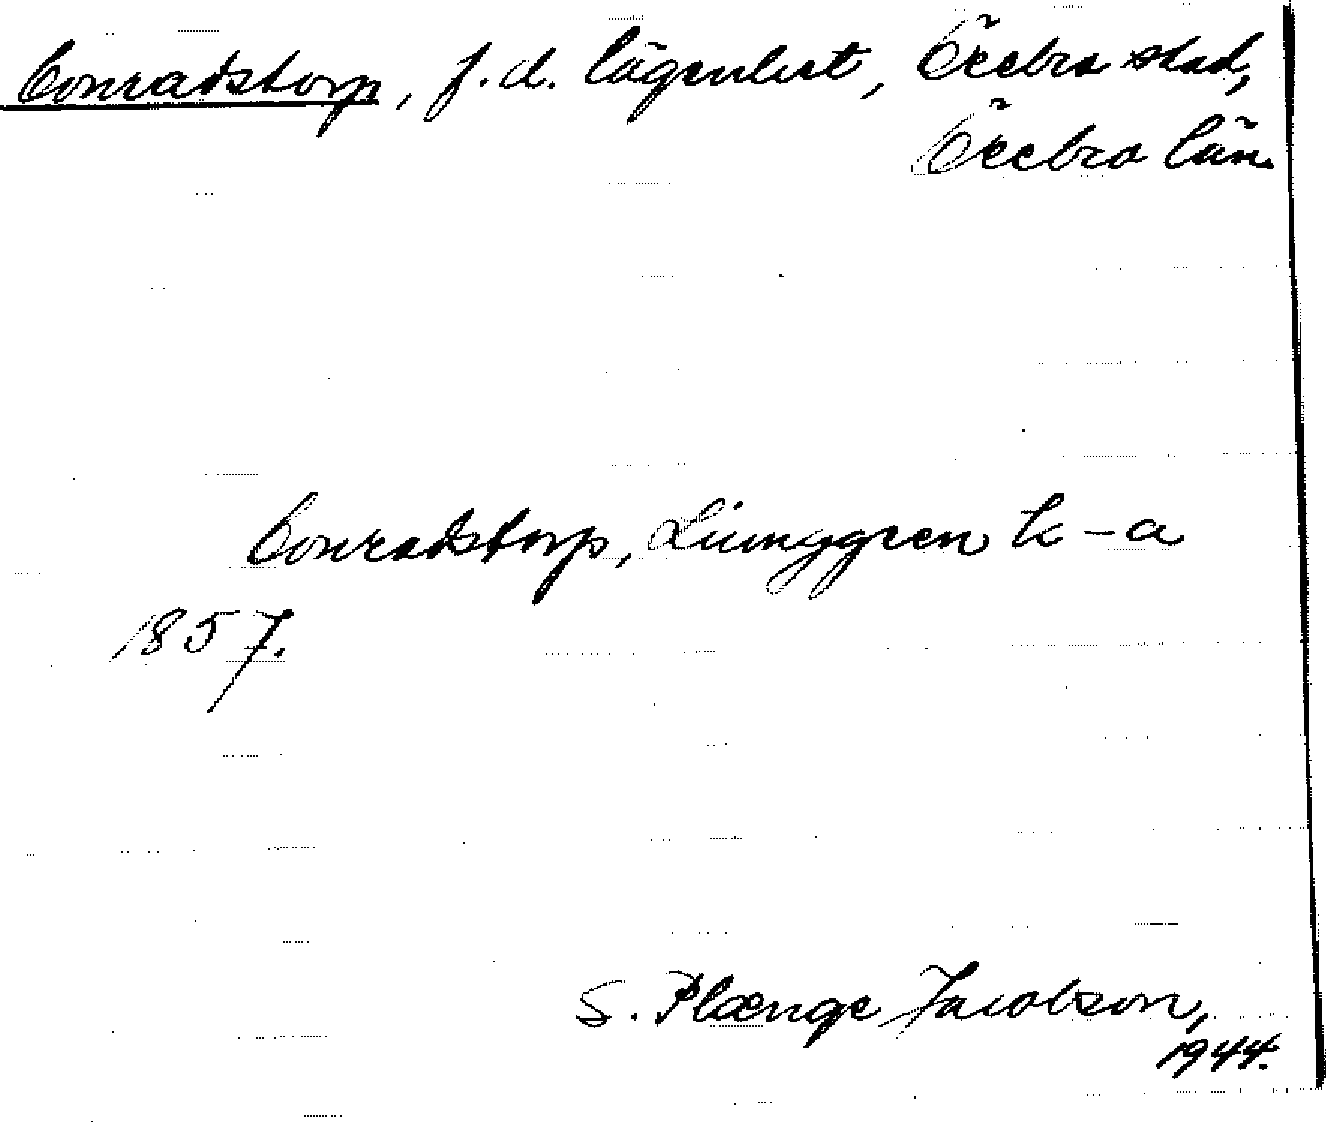 Conradstorp, f.d. lägenhet, Örebro stad,
Örebro län.
Conradstorp, Ljunggren k-a
1857.
S. Plænge Jacobson,
1944.